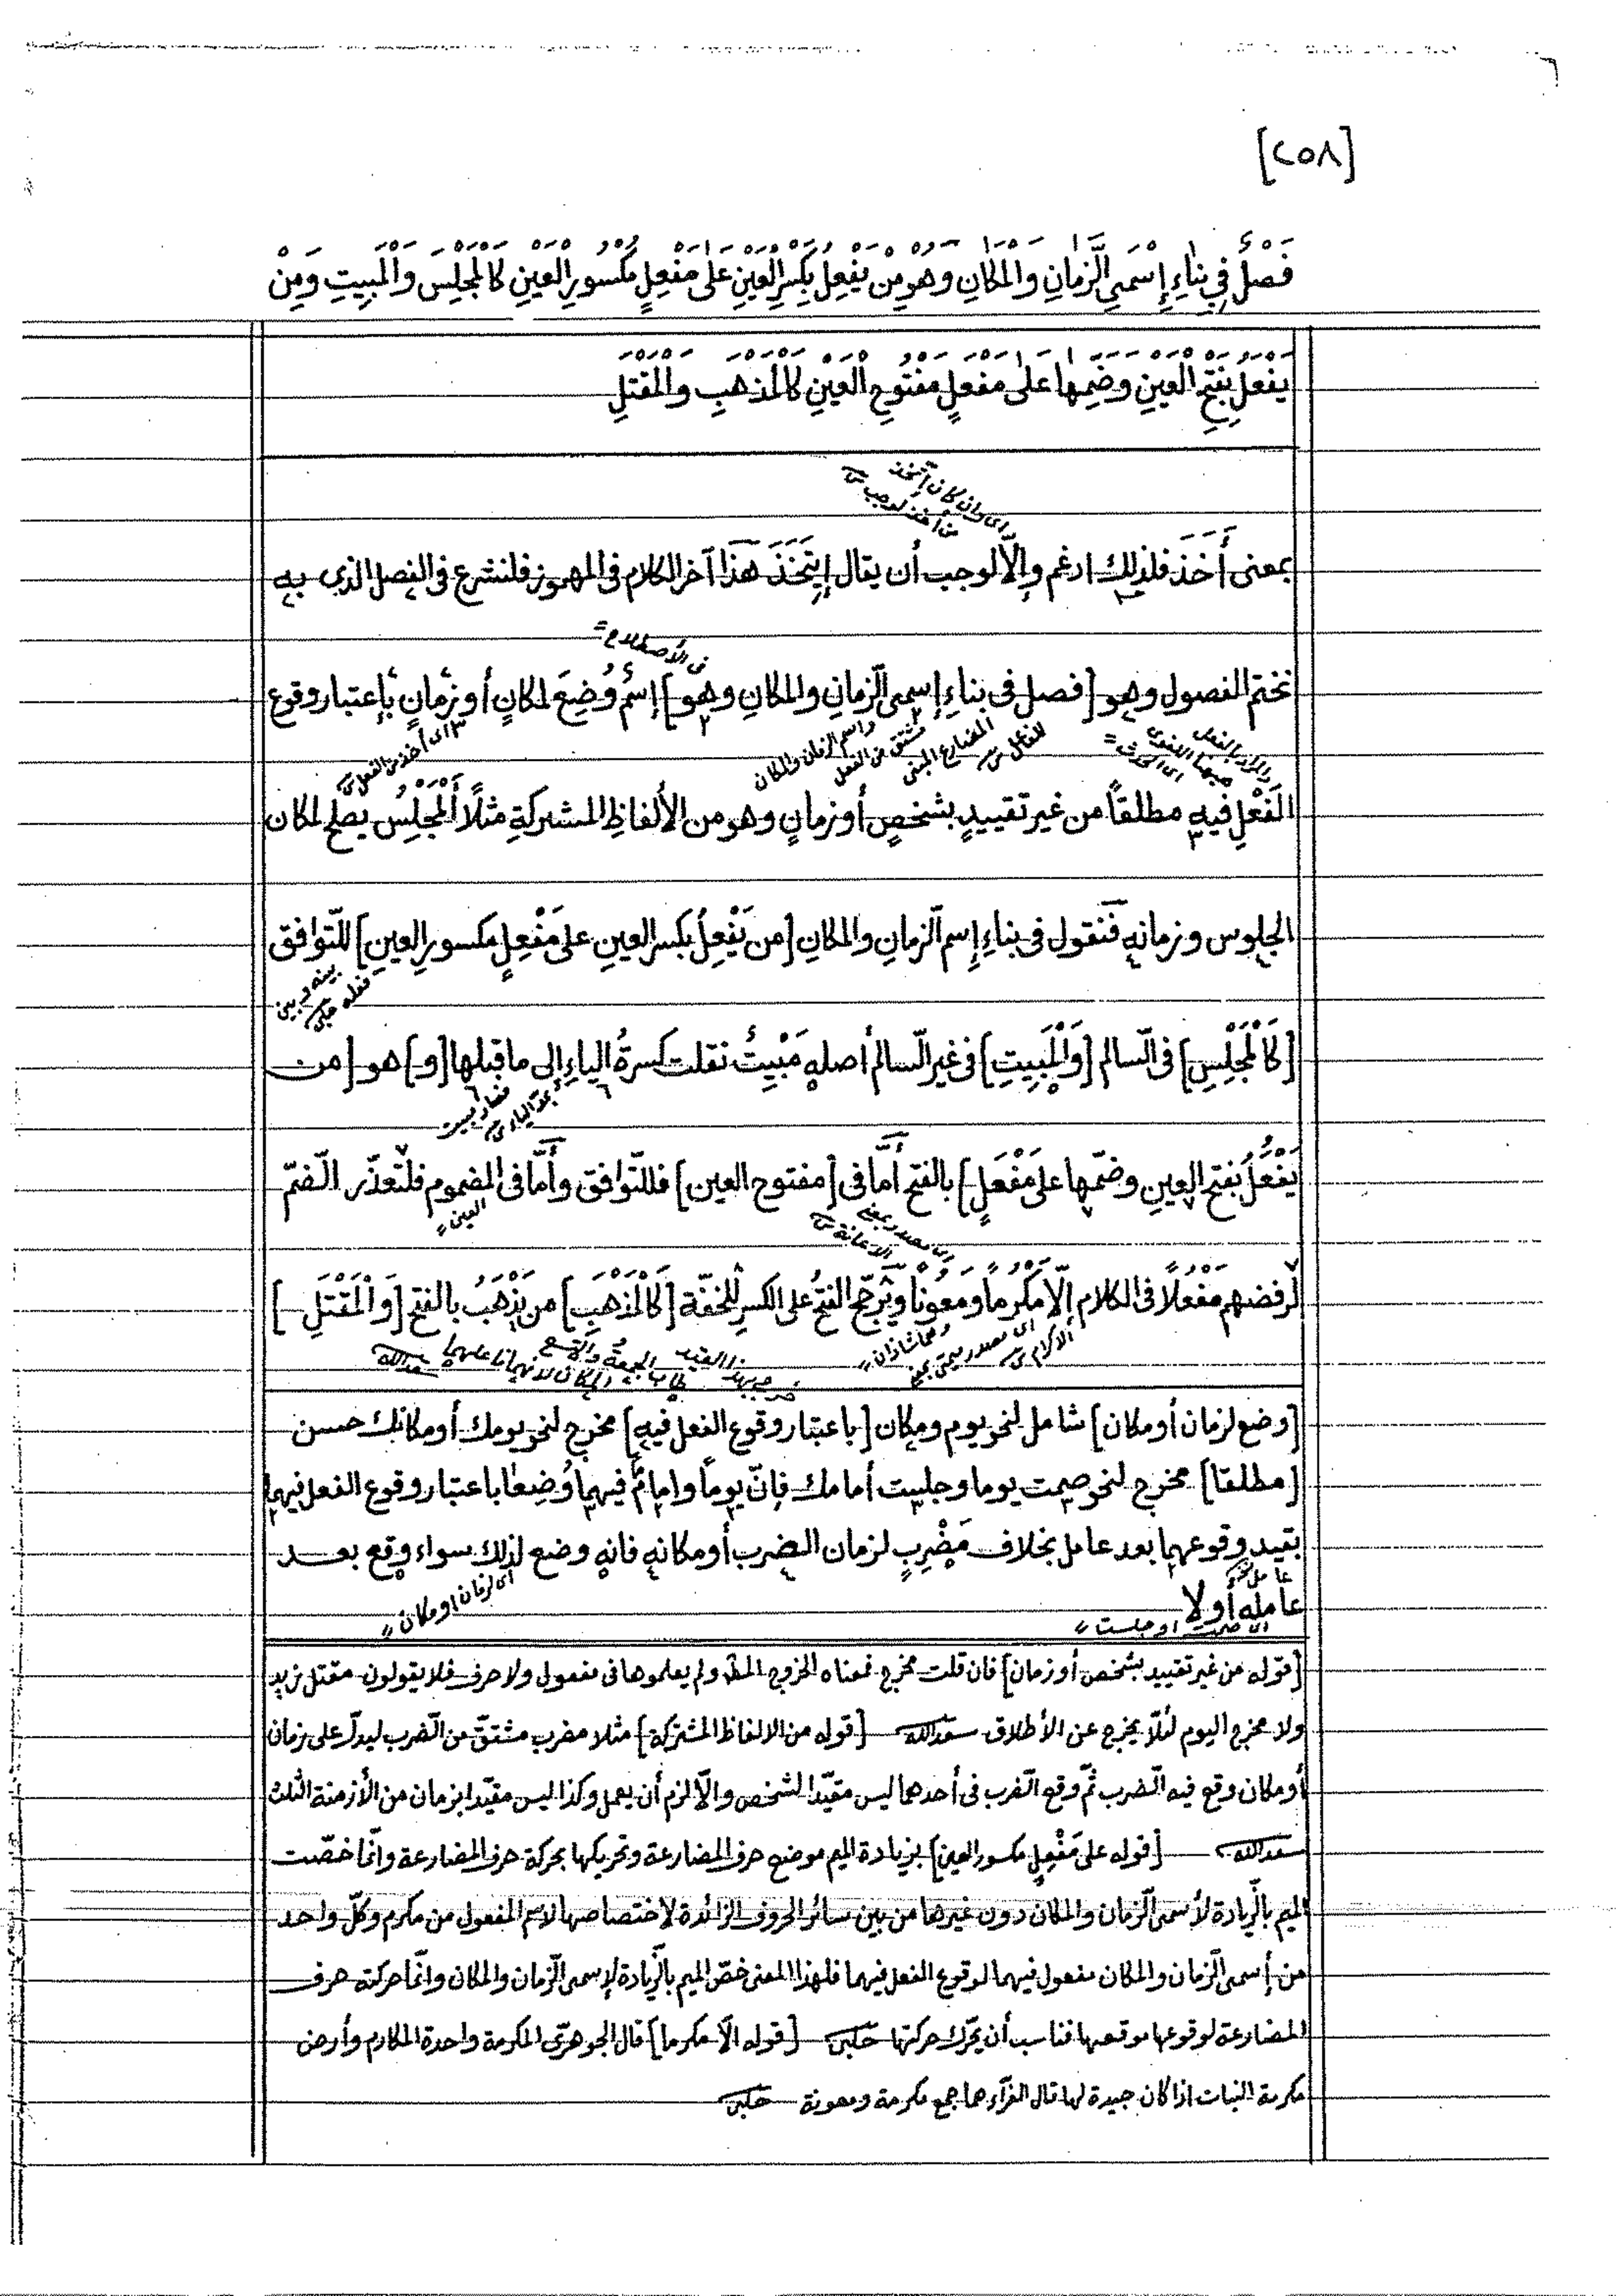 [٢٥٨]
فَصْلٌ فِي بِنَاءِ إِسْمَىِ الزَّمَانِ وَالْمَكَانِ وَهُوَ مِنْ يَفْعِلُ بِكَسْرِ الْعَيْنِ عَلَى مَفْعِلٍ مَكْسُورِ الْعَيْنِ كَالْمَجْلِسِ وَالْمَبِيتِ وَمِنْ
يَفْعَلُ بِفَتْحِ الْعَيْنِ وَضَمِّهَا عَلَى مَفْعَلٍ مَفْتُوحِ الْعَيْنِ كَالْمَذْهَبِ وَالْمَقْتَلِ
اى وان كان إتخذ
من أخذ لوجب
بمعنى أَخَذَ فلذلك ادغم وإلّا لوجب أن يقال إِيتَخَذَ هَذا آخر الكلام فى المهموز فلنشرع فى الفصل الذى به
فى الأصطلاح =
نختم الفصول وهو [فصل فى بناءِ إسمى الزّمانِ والمكانِ وهو] إِسْمٌ وُضِعَ لمكانٍ أو زمانٍ بإعتبار وقوع
والمراد بالفعل
ههنا اللغوى
اى الحدث =
المضارع المبنى
للفاعل
واسم الزمان والمكان
مشتق من الفعل
اى أخذ من الفعل
الفَعْلِ فيه مطلقاً من غير تقييدٍ بشخصٍ أو زمانٍ وهو من الألفاظِ المشتركةِ مثلًا أَلْمَجْلِسُ يصلح لمكان
الجلوس وزمانه فَنقول فى بناءِ إسم الزّمانِ والمكانِ [من يَفْعِلُ بكسر العينِ على مَفْعِلٍ مكسورِ العينِ] للتّوافق
بينه وبين
فعله چلبى
[كَالْمَجْلِسِ] فى السّالم [وَالْمَبِيتِ] فى غير السّالم أصله مَبْيِتٌ نقلت كسرةُ الياءِ إلى ما قبلها [و] هو [من
فصار مبيت
يَفْعَلُ بفتح العينِ وضمّها على مَفْعَلٍ] بالفتح أمّا فى [مفتوح العين] فللتّوافق وأَمّا فى المضموم فلتعذّر الضّمّ
العين =
اى مصدر بمعنى
الاعانة
لرفضهم مَفْعُلاً فى الكلام إلّا مَكْرُماً ومَعُوناً وتَرجّح الفتحُ على الكسر للخفّة [كَالْمَذْهَبِ] من يَذْهَبُ بالفتح [وَالْمَقْتَلِ]
اى مصدر ميمى بمعنى
الاكرام
وهما شاذان =
[وضع لزمان أو مكان] شامل لنحو يوم ومكان [باعتبار وقوع الفعل فيه] مخرج لنحو يومك أو مكانك حسن
[مطلقا] مخرج لنحو صمت يوما وجلست أمامك فإنّ يوماً وامامَ فيهما وُضِعا باعتبار وقوع الفعل فيهما
بقيد وقوعهما بعد عامل بخلاف مَضْرِبٍ لزمان الضرب أو مكانه فانه وضع لذلك سواء وقع بعد
اى لزمان او مكان =
عامله أو لا
اى صمت او جلست =
[قوله من غير تقييد بشخص أو زمان] فان قلت مخرج فمعناه الخروج المط ولم يعلموها فى مفعول ولا حرف فلا يقولون مقتل زيد
ولا مخرج اليوم لئلّا يخرج عن الأطلاق سعدالله [قوله من الالفاظ المشتركة] مثلا مضرب مشتقّ من الضّرب ليدلّ على زمان
أو مكان وقع فيه الضّرب ثمّ وقع الضّرب فى أحدهما ليس مقيّدا لشخص والّا لزم أن يعمل وكذا ليس مقيّدا بزمان من الأزمنة الثلث
سعدالله [قوله على مَفْعِلٍ مكسور العين] بزيادة الميم موضع حرف المضارعة وتحريكها بحركة حرف المضارعة وانّما خصّت
الميم بالزّيادة لأسمى الزّمان والمكان دون غيرها من بين سائر الحروف الزائدة لإختصاصها لاسم المفعول من مكرم وكلّ واحد
من إسمى الزّمان والمكان مفعول فيهما لوقوع الفعل فيهما فلهذا المعنى خصّ الميم بالزّيادة لإسمى الزّمان والمكان وانّما حركته حرف
المضارعة لوقوعها موقعها فناسب أن يحرّك حركتها چلبى [قوله الّا مكرما] قال الجوهرّى المكرمة واحدة المكارم وأرض
مكرمة النبات اذا كان جيدة لها قال الفرّاء هما جمع مكرمة ومعونة چلبى